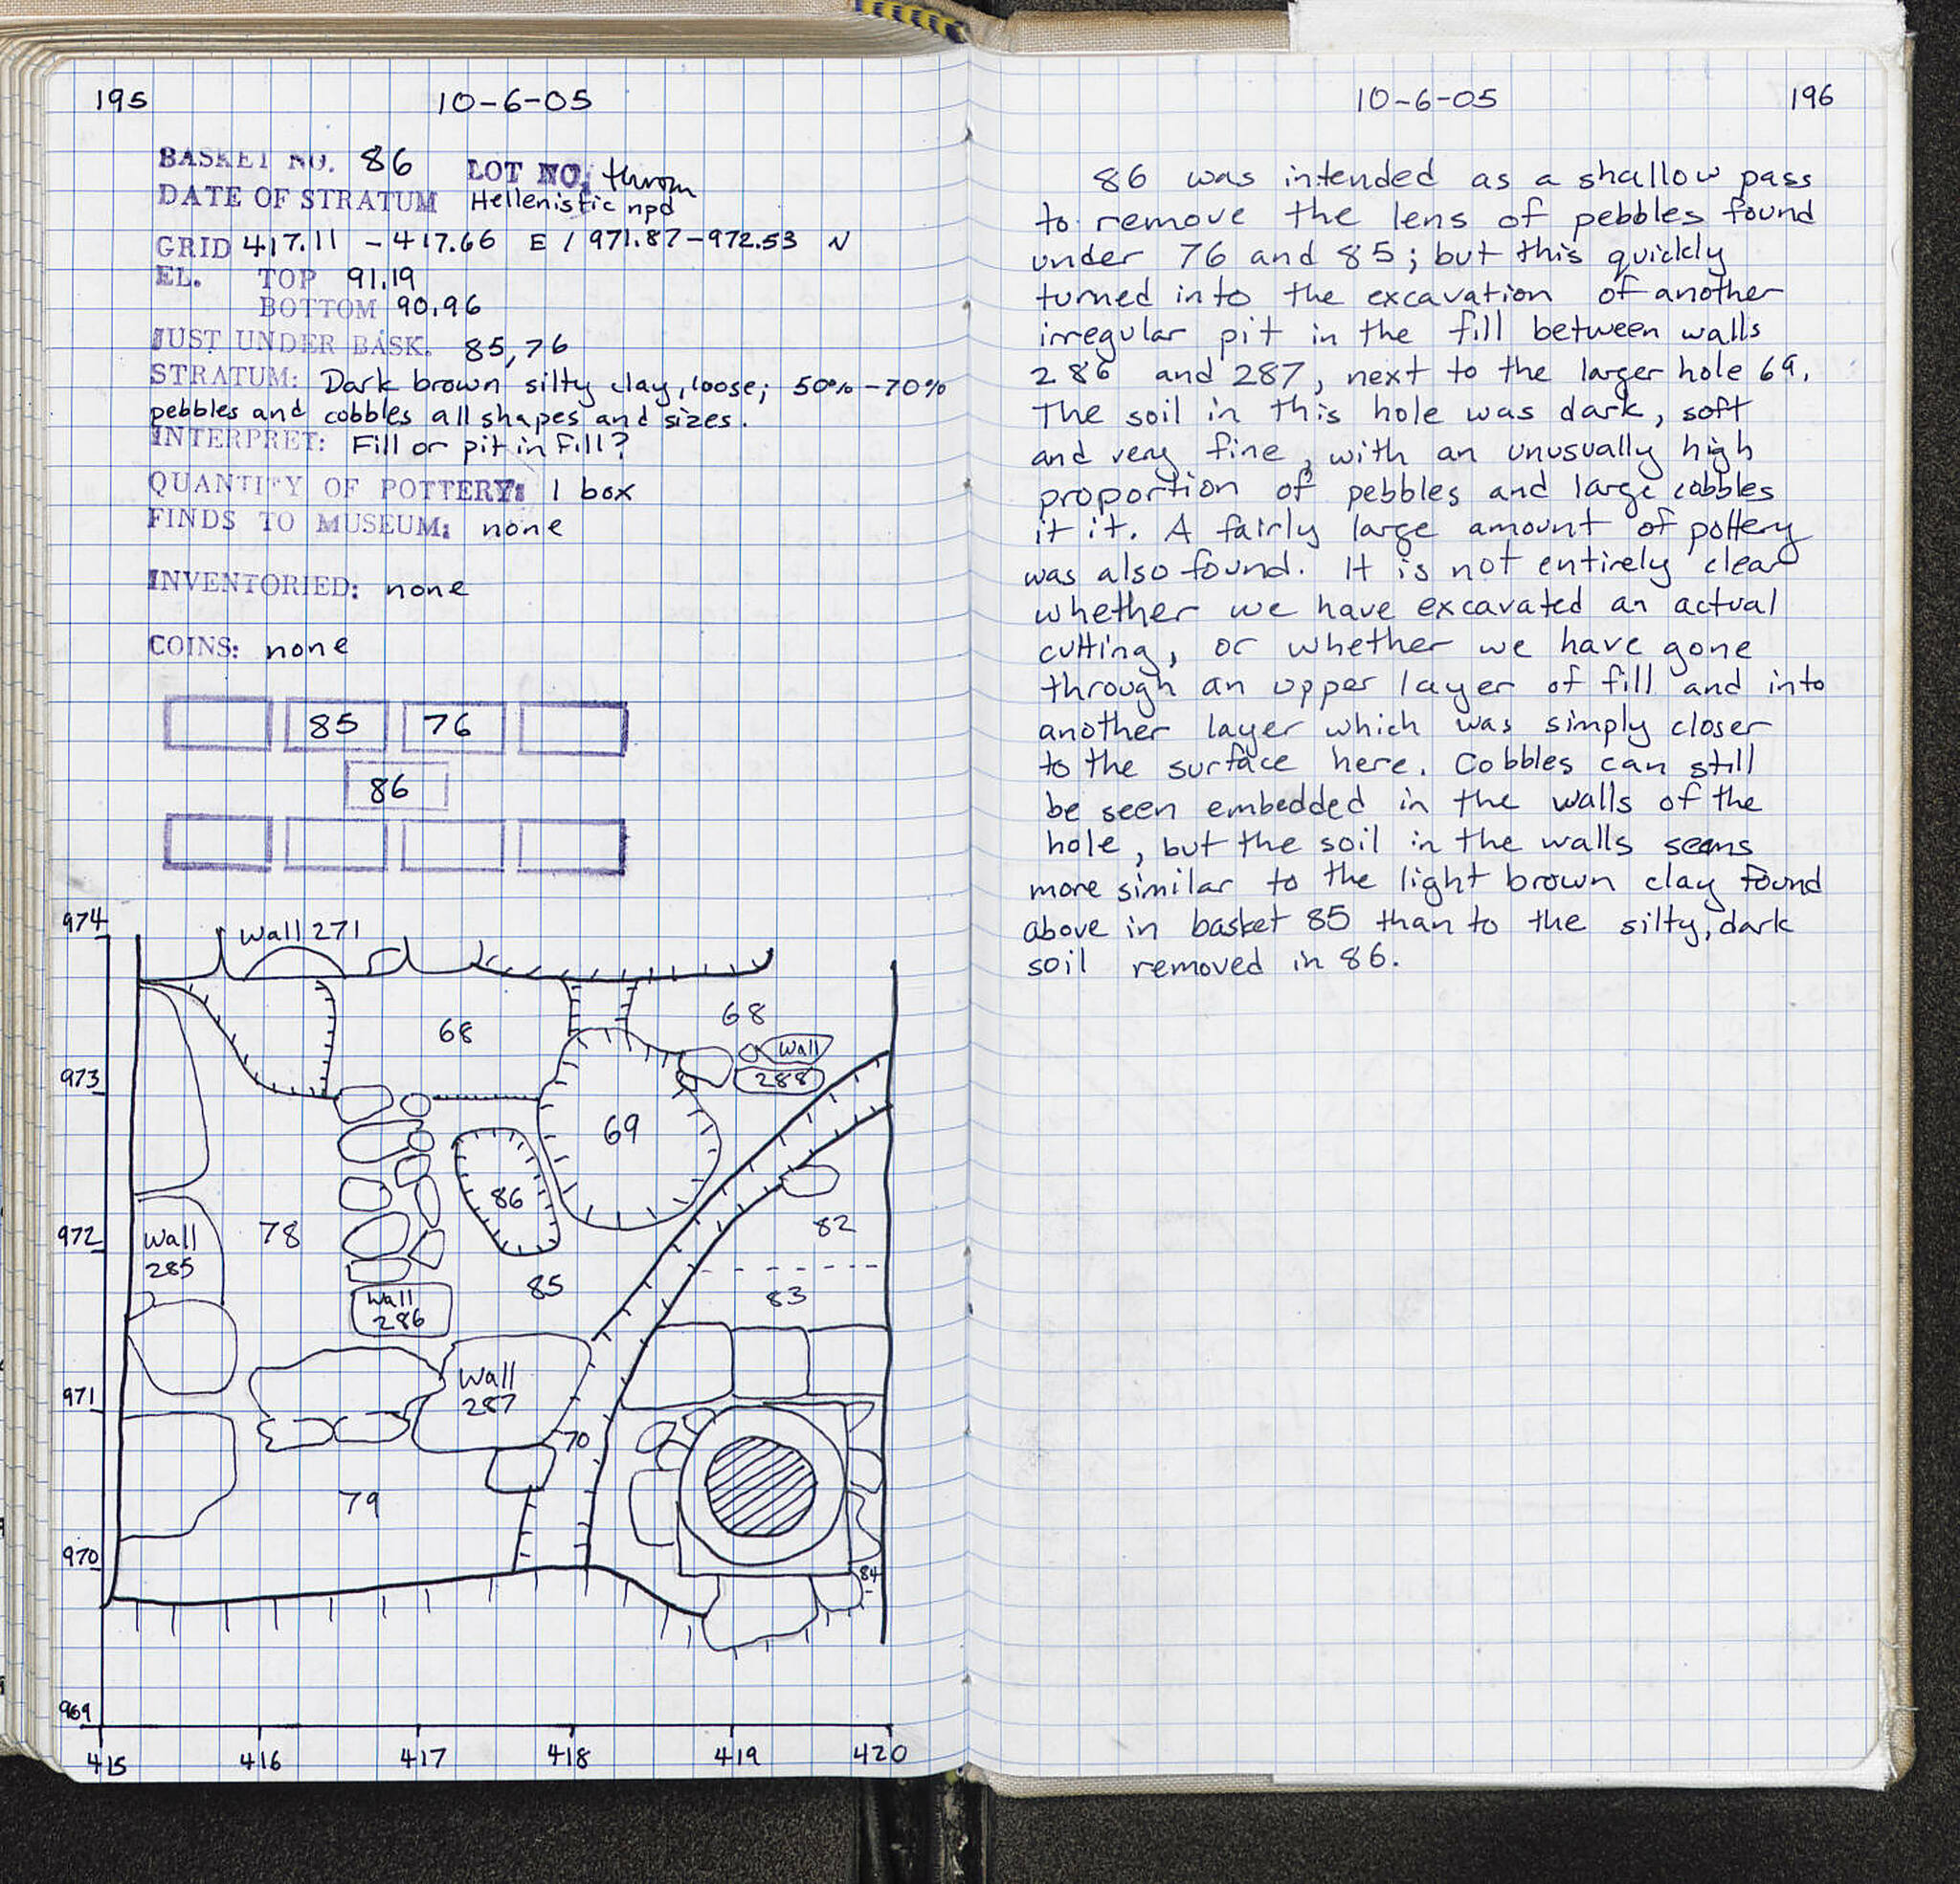 195
10-6-05
BASKET NO. 86 LOT NO. throm
DATE OF STRATUM Hellenistic npd
GRID 417.11 - 417.66 E / 971.87-972.53 N
EL. TOP 91.19
BOTTOM 90.96
JUST UNDER BASK. 85,76
STRATUM: Dark brown silty clay, loose; 50%-70%
pebbles and cobbles all shapes and sizes.
INTERPRET: Fill or pit in fill?
QUANTITY OF POTTERY: 1 box
FINDS TO MUSEUM: none
INVENTORIED: none
COINS: none
85 76
86
974
Wall 271
68
68
Wall
288
973
69
86
972
Wall
285
78
82
85
83
Wall
286
971
Wall
287
70
79
970
84
969
415 416 417 418 419 420
10-6-05
196
86 was intended as a shallow pass
to remove the lens of pebbles found
under 76 and 85; but this quickly
turned into the excavation of another
irregular pit in the fill between walls
286 and 287, next to the larger hole 69.
The soil in this hole was dark, soft
and very fine, with an unusually high
proportion of pebbles and large cobbles
it it. A fairly large amount of pottery
was also found. It is not entirely clear
whether we have excavated an actual
cutting, or whether we have gone
through an upper layer of fill and into
another layer which was simply closer
to the surface here. Cobbles can still
be seen embedded in the walls of the
hole, but the soil in the walls seems
more similar to the light brown clay found
above in basket 85 than to the silty, dark
soil removed in 86.